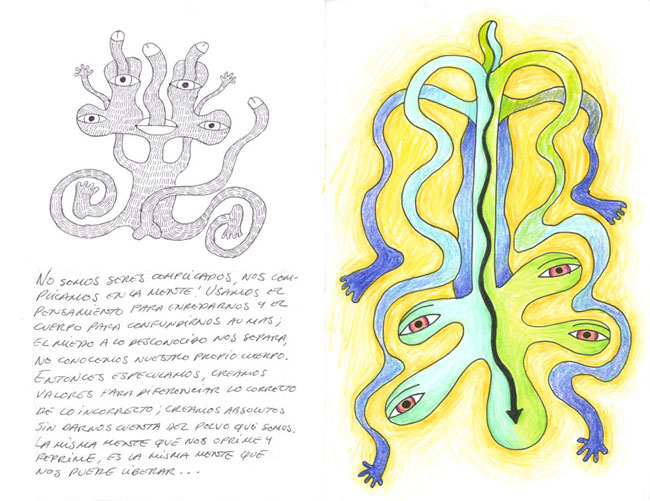 NO SOMOS SERES COMPLICADOS, NOS COM-
PLICAMOS EN LA MENTE! USAMOS EL
PENSAMIENTO PARA ENREDARNOS Y EL
CUERPO PARA CONFUNDIRNOS AUN MAS;
EL MIEDO A LO DESCONOCIDO NOS SEPARA,
NO CONOCEMOS NUESTRO PROPIO CUERPO.
ENTONCES ESPECULAMOS, CREAMOS
VALORES PARA DIFERENCIAR LO CORRECTO
DE LO INCORRECTO; CREAMOS ABSOLUTOS
SIN DARNOS CUENTA DEL POLVO QUE SOMOS.
LA MISMA MENTE QUE NOS OPRIME Y
REPRIME, ES LA MISMA MENTE QUE
NOS PUEDE LIBERAR...